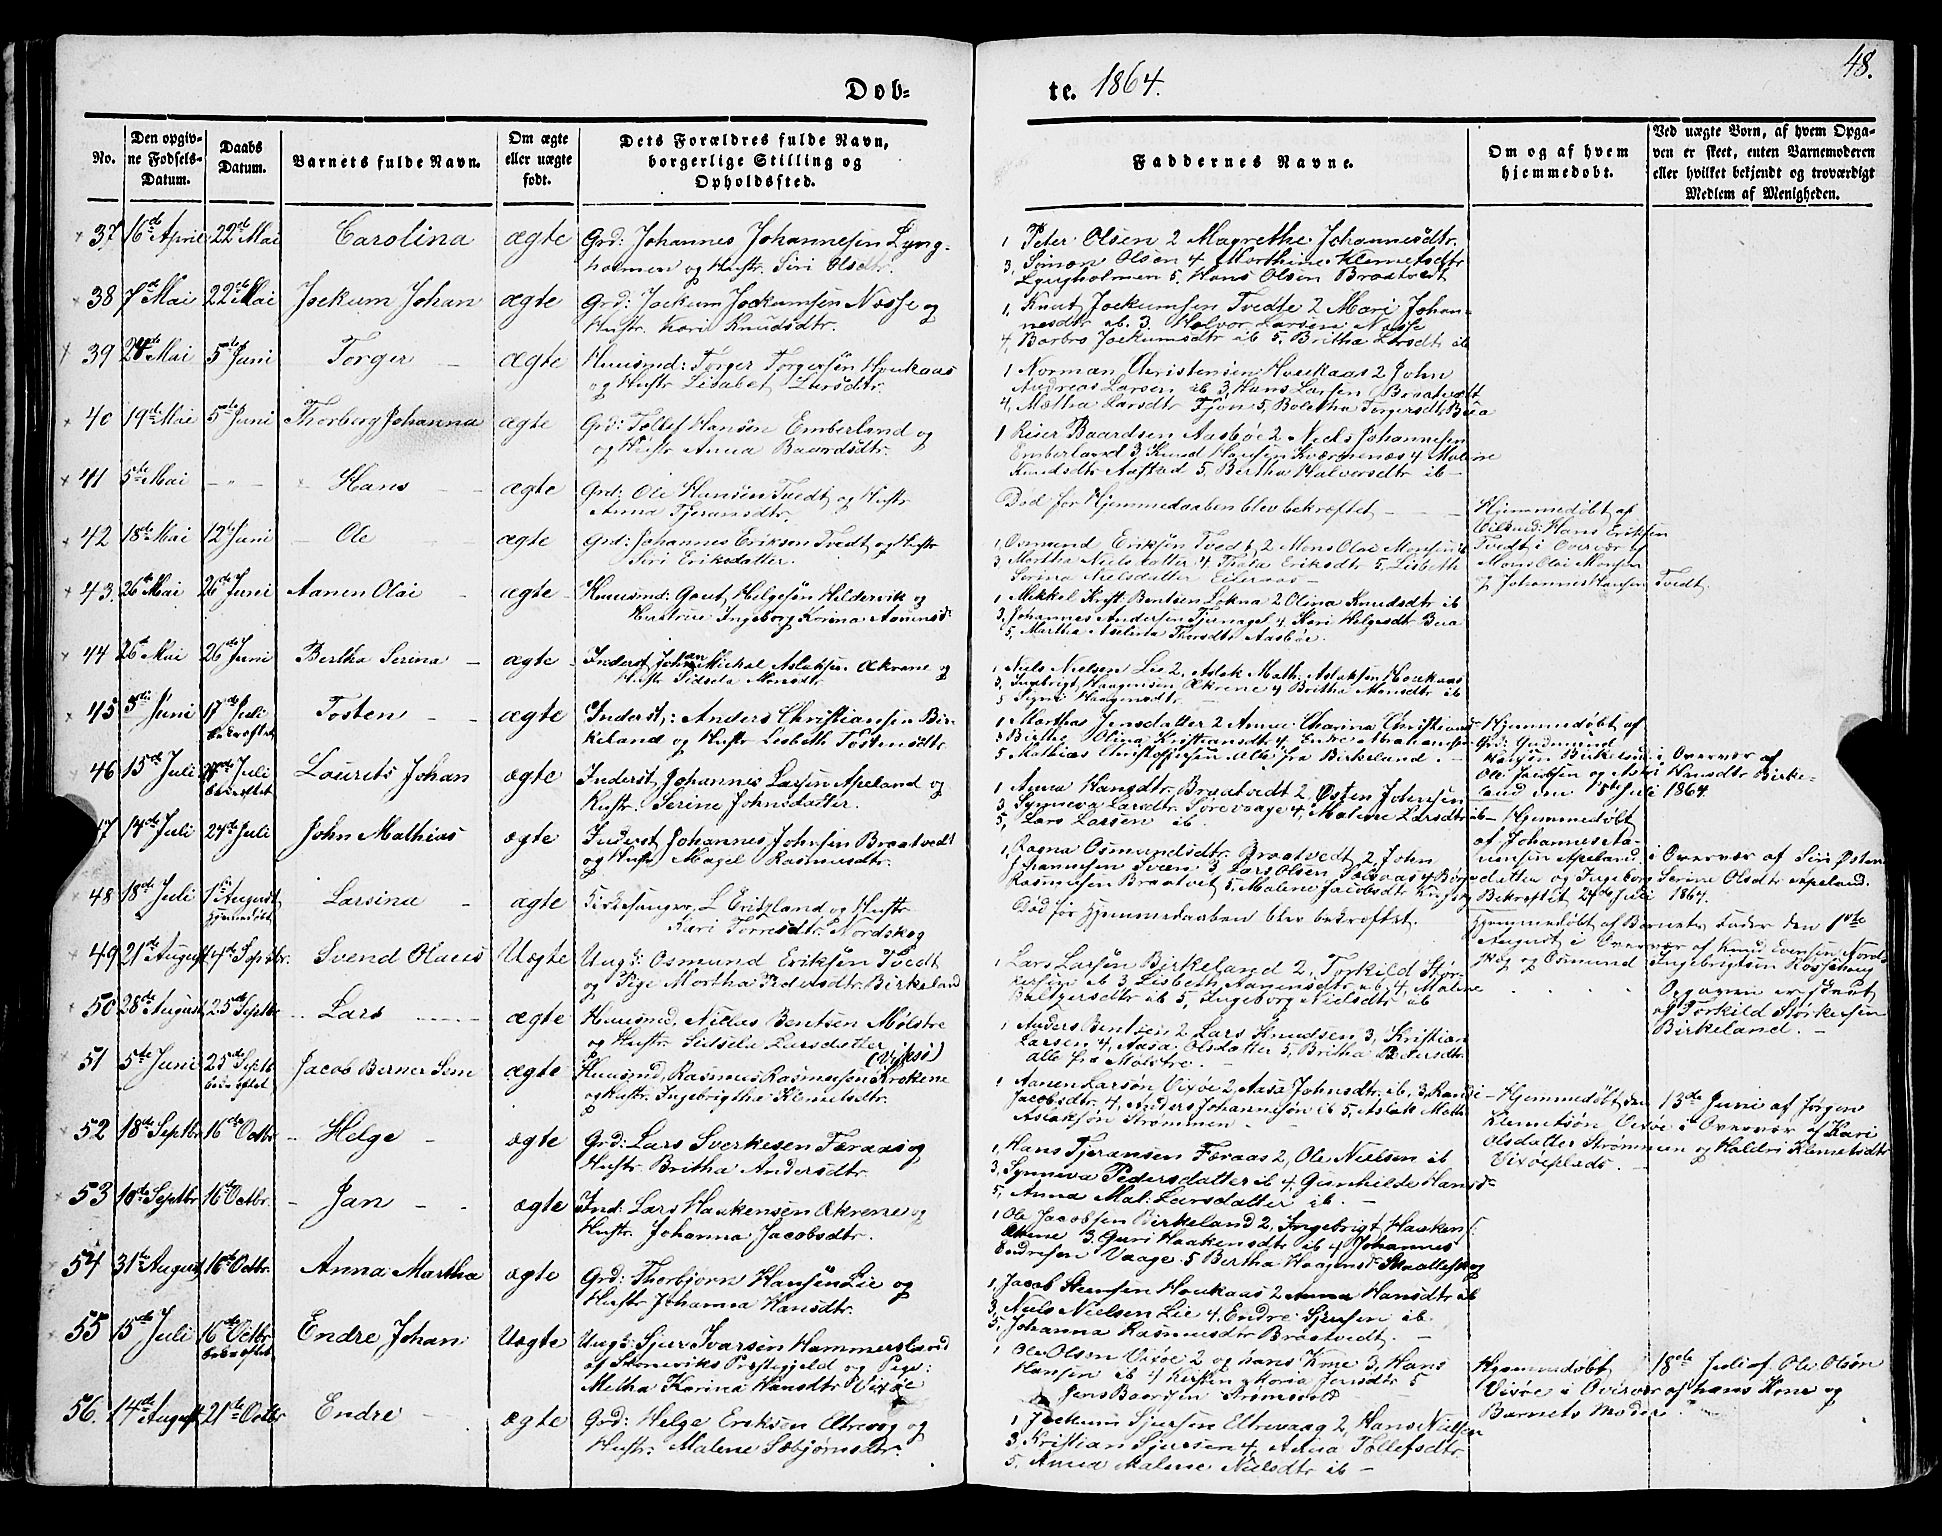 48.
Døb-
te. 1864.
No.
Den opgiv-
ne Fødsels-
Datum.
Daabs
Datum.
Barnets fulde Navn.
Om ægte
eller uægte
født.
Dets Forældres fulde Navn,
borgerlige Stilling og
Opholdssted.
Faddernes Navne.
Om og af hvem
hjemmedøbt.
Ved uægte Børn, af hvem Opga-
ven er skeet, enten Barnemoderen
eller hvilket bekjendt og troværdigt
Medlem af Menigheden.
37 16de April 22de Mai Carolina ægte Grd: Johannes Johannesen Lyng-
holmen og Hustr. Siri Olsdtr.
1, Peter Olsen 2 Magrethe Johannesdtr.
3, Simon Olsen 4 Marthine Klemetsdtr
Lyngholmen 5. Hans Olsen Braatvedt
38 7de Mai 22de Mai Jockum Johan ægte Grd: Jockum Jockumsen Næsse og
Hustr. Kari Knudsdtr.
1, Knut Jockumsen Tvedte 2 Mari Johan-
nesdtr ib. 3. Halvor Larsen Næsse
4, Barbro Jockumsdtr ib 5, Britha Larsdtr ib
39 Mai 5te Juni Torger ægte Huusmd: Torger Torgersen Houkaas
og Hustr Lisabet Larsdtr.
1 Norman Christensen Houkaas 2 John
Andreas Larsen ib 3, Hans Larsen Braatvedt
4, Metha Larsdtr Tjøn 5, Boletha Torgersdtr Bua
40 19de Mai 5te Juni Thorberg Johanna ægte Grd: Tollef Hansen Emberland og
og Hustr Anna Baardsdtr.
1 Reier Baardsen Aasbøe 2 Niels Johannesen
Emberland 3, Knud Hansen Kværnenæs 4 Malene
Knudsdtr Aafstad 5, Bertha Halversdtr ib -
41 5te Mai - " - Hans ægte Grd: Ole Hansen Tvedt og Hustr
Anna Tjeransdtr.
Død før Hjemmedaaben blev bekræftet
Hjemmedøbt af
Hans Eriksen
Tvedt i Overvær af
Mons Olai Monsen
og Johannes Hansen Tvedt.
42 18de Mai 12te Juni Ole ægte Grd: Johannes Eriksen Tvedt og Hustr
Siri Eriksdatter.
1, Osmund Eriksen Tvedt, 2 Mons Olai Monsen ib
3, Martha Nielsdatter 4 Eriksdtr 5, Lisbeth
Serina Nielsdatter Eiteraas -
43. 26de Mai 26de Juni Aanen Olai ægte Huusmd: Gaut Helgesen Hildervik og
Hustrue Ingeborg Korena Aanensd:
1, Mikkel Krist: Bentsen Løkna 2 Olina Knudsdtr ib
3, Johannes Andersen Tjernagel 4, Kari Helgesdtr Bua
5, Martha Aselina Thorsdtr Aasbøe.
44 26de Mai 26de Juni Bertha Serina ægte Inderst Johan Mickal Aslaksen Økrene og
Hustr Sidsela Monsdtr.
1, Niels Nielsen Lie 2, Aslak Math: Aslaksen Houkaas
3, Ingebrigt Haagensen Økrene 4 Britha Monsdtr ib
5 Signi Haagensdtr.
45 Juni 17de Juli bekræftet Tosten ægte Inderst: Anders Christiansen Bir-
keland og Hustr Lisbeth Tostensdtr
1 Marthas Jensdatter 2 Anne Charina Christians-
3 Birthe Olina Kristiansdtr 4, Endre Nathanaelsen
5 Mathias Christoffersen Alle fra Birkeland. -
Hjemmedøbt af
Grd: Gudmund
Birkeland i Overvær af
Ole Jacobsen og Hansdtr Birke-
land den
46 15de Juli Juli bekræftet Lourits Johan ægte Inderst Johannes Larsen Apeland og
Hustr. Serine Johnsdatter.
1, Anna Hansdtr, Braatvedt 2, Østen Johnsen
3, Synneva Larsdtr Sørevaage 4, Malene Larsdtr ib
5, Lars Larsen ib
15de Juli 1864.
Hjemmedøbt
af Johannes
Apeland i Overvær af Siri Østens-
datter og Ingeborg Serine Olsdtr Apeland.
Bekræftet 24de Juli 1864.
47 14de Juli 24de Juli John Mathias ægte Inderst Johannes Johnsen Braatvedt
og Hustr Magel Rasmusdtr.
1, Ragna Osmundsdtr Braatvedt, 2, John
Johannesen Sveen 3, Lars Olsen 4 Børge
Rasmusen Braatvet 5, Malene Jacobsdtr
48 18de Juli 1ste August hjemmedøbt Larsina ægte Kirkesanger, L. Eritzland og Hustr
Kari Torresdtr. Nordskog
Død før Hjemmedaaben blev bekræftet.
Hjemmedøbt af Barnets Fader den 1ste
August i Overvær af Knud Evensen Nord-
skog og Osmund Ingebrigtsen Rossehaug
49 21de August 4de Septbr. Svend Olaus Uægte Ungk: Osmund Eriksen Tvedt
og Pige Martha Pedersdtr. Birkeland
1, Lars Larsen Birkeland 2, Torkild Stør-
kersen ib 3, Lisbeth Aanensdtr ib 4, Malene
Baltzersdtr ib 5, Ingeborg Nielsdtr ib
Opgaven er skeet
af Torkild Størkersen
Birkeland. -
50 28de August 25de Septbr Lars ægte Huusmd, Niklas Bentsen Mølstre
og Hustr Sidsela Larsdatter
1 Anders Bentsen 2 Lars Knudsen 3, Kristian
Larsen 4, Aasa Olsdatter 5, Britha Petersdtr
alle fra Mølstre. -
51 5te Juni 25de Septb bekræftet Jacob Berner Sem ægte Huusmd, Rasmus Rasmussen Krokene (Vixøe)
og Hustr. Ingebrigtha Klemetsdtr.
1, Aanen Larsøn Vixøe 2, Aasa Johnsdtr. ib. 3, Randi
Jacobsdtr. 4, Anders Johannesøn ib 5, Aslak Math:
Aslaksøn Strømmen
Hjemmedøbt den 13de Juni af Jørgen
Klemetsøn Vixøe i Overvær af Kari
Olsdatter Strømmen og Haldri Klemetsdtr
Vixøeplads. -
52 18de Septbr 16de Octbr Helge ægte Grd: Lars Sverkesen Færaas og
Hustr. Britha Andersdtr.
1, Hans Tjeransen Færaas 2, Ole Nielsen ib
3, Synneva Pedersdatter ib 4, Gunhilde Hansd-
5, Anna Mal: Larsdatter ib. -
53 10de Septbr 16de Octbr. Jan ægte Ind: Lars Haakensen Økrene og
Hustr. Johanna Jacobsdtr.
1, Ole Jacobsen Birkeland 2, Ingebrigt, Haakens:
Økrene 3 Guri Haakensdtr ib 4 Johannes
Endresen Vaage. 5 Bertha Haagensd: Skaalleskog
54 31te August 16de Octbr. Anna Martha ægte Grd: Thorbjørn Hansen Lie og
Hustr Johanna Hansdtr.
1, Jacob Steensen Houkaas 2 Anna Hansdtr ib
3, Niels Nielsen Lie 4, Endre Sjursen ib.
5, Johanna Rasmusdtr Braatvedt. -
55 15de Juli 16de Octbr bekræftet Endre Johan Uægte Ungk: Sjur Ivarsen Hammersland
af Skoneviks Præstegjeld og Pige:
Metha Karina Hansdtr Vixøe
1 Ole Olsen Vixøe 2 og hans Kone 3, Hans
Hansen ib 4 Kirsten Maria Jensdtr 5
Jens Baarsen Strømsvold
Hjemmedøbt 18de Juli af Ole Olsøn
Vixøe i Overvær af hans Kone og
Barnets Moder.
56. 14de August 21de Octbr Endre ægte Grd: Helge Eriksen Eltrevaag og
Hustr: Malene Sæbjørnsdtr.
1 Jockum Sjursen Eltrevaag 2, Hans Nielsen
3, Kristian Sjursen 4, Anna Tollefsdtr.
5, Anna Malene Nielsdtr ib -